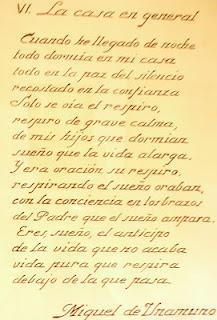 VI. La casa en general
Cuando he llegado de noche
todo dormía en mi casa
todo en la paz del silencio
recostado en la confianza
Solo se oía el respiro,
respiro de grave calma,
de mis hijos que dormían
sueño que la vida alarga.
Y era oración su respiro,
respirando el sueño oraban,
con la conciencia en los brazos
del Padre que el sueño ampara.
Eres, sueño, el anticipo
de la vida que no acaba
vida pura que respira
debajo de la que pasa.
Miguel de Unamuno